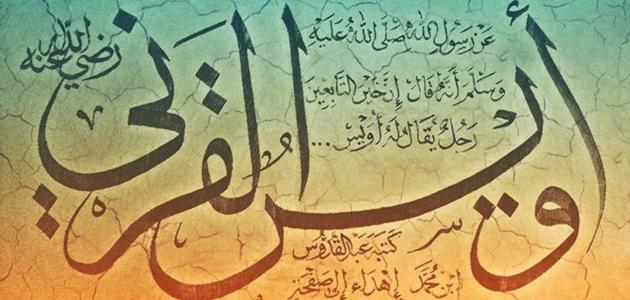 أويس القرني
رضي الله عنه
عَنْ رَسُولِ اللهِ صَلَّى اللهُ عَلَيْهِ
وَسَلَّمَ أَنَّهُ قَالَ إِنَّ خَيْرَ التَّابِعِينَ
رَجُلٌ يُقَالُ لَهُ أُوَيْسٌ ...
كتبه عبد القدوس
ابن محمد إهداء إلى صفحة